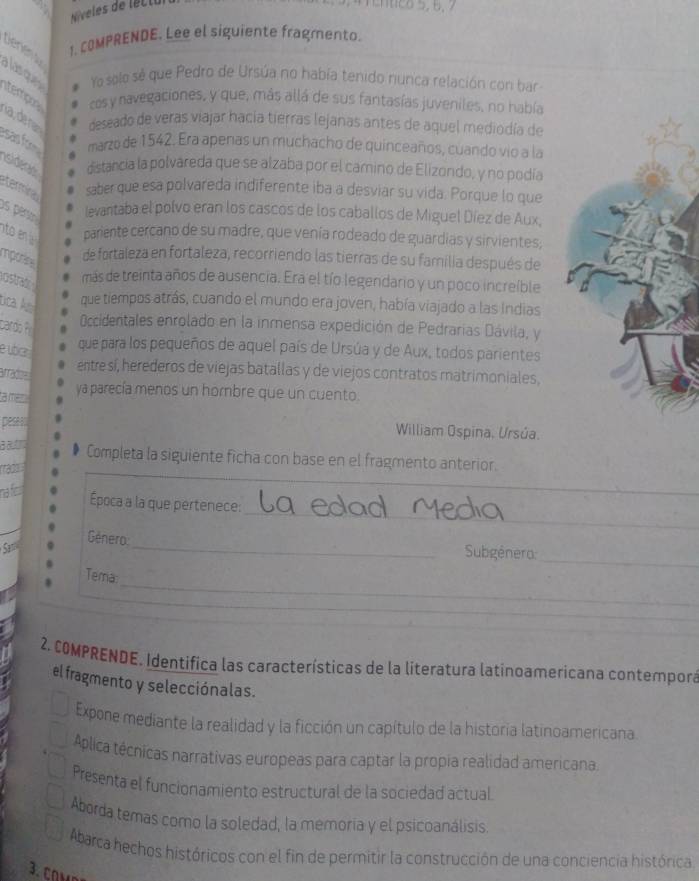 Niveles de
5, 6, 7
1. COMPRENDE. Lee el siguiente fragmento.
Yo solo sé que Pedro de Ursúa no había tenido nunca relación con bar-
cos y navegaciones, y que, más allá de sus fantasías juveniles, no había
deseado de veras viajar hacia tierras lejanas antes de aquel mediodía de
marzo de 1542. Era apenas un muchacho de quinceaños, cuando vio a la
distancia la polvareda que se alzaba por el camino de Elizondo, y no podía
saber que esa polvareda indiferente iba a desviar su vida. Porque lo que
levantaba el polvo eran los cascos de los caballos de Miguel Díez de Aux,
pariente cercano de su madre, que venía rodeado de guardias y sirvientes,
de fortaleza en fortaleza, recorriendo las tierras de su familia después de
más de treinta años de ausencia. Era el tío legendario y un poco increíble
que tiempos atrás, cuando el mundo era joven, había viajado a las Indias
Occidentales enrolado en la inmensa expedición de Pedrarias Dávila, y
que para los pequeños de aquel país de Ursúa y de Aux, todos parientes
entre sí, herederos de viejas batallas y de viejos contratos matrimoniales,
ya parecía menos un hombre que un cuento.
William Ospina. Ursúa.
Completa la siguiente ficha con base en el fragmento anterior.
Época a la que pertenece: La edad Media
Género:
Subgénero:
Tema:
2. COMPRENDE. Identifica las características de la literatura latinoamericana contemporá
el fragmento y selecciónalas.
Expone mediante la realidad y la ficción un capítulo de la historia latinoamericana.
Aplica técnicas narrativas europeas para captar la propia realidad americana.
Presenta el funcionamiento estructural de la sociedad actual.
Aborda temas como la soledad, la memoria y el psicoanálisis.
Abarca hechos históricos con el fin de permitir la construcción de una conciencia histórica
3.